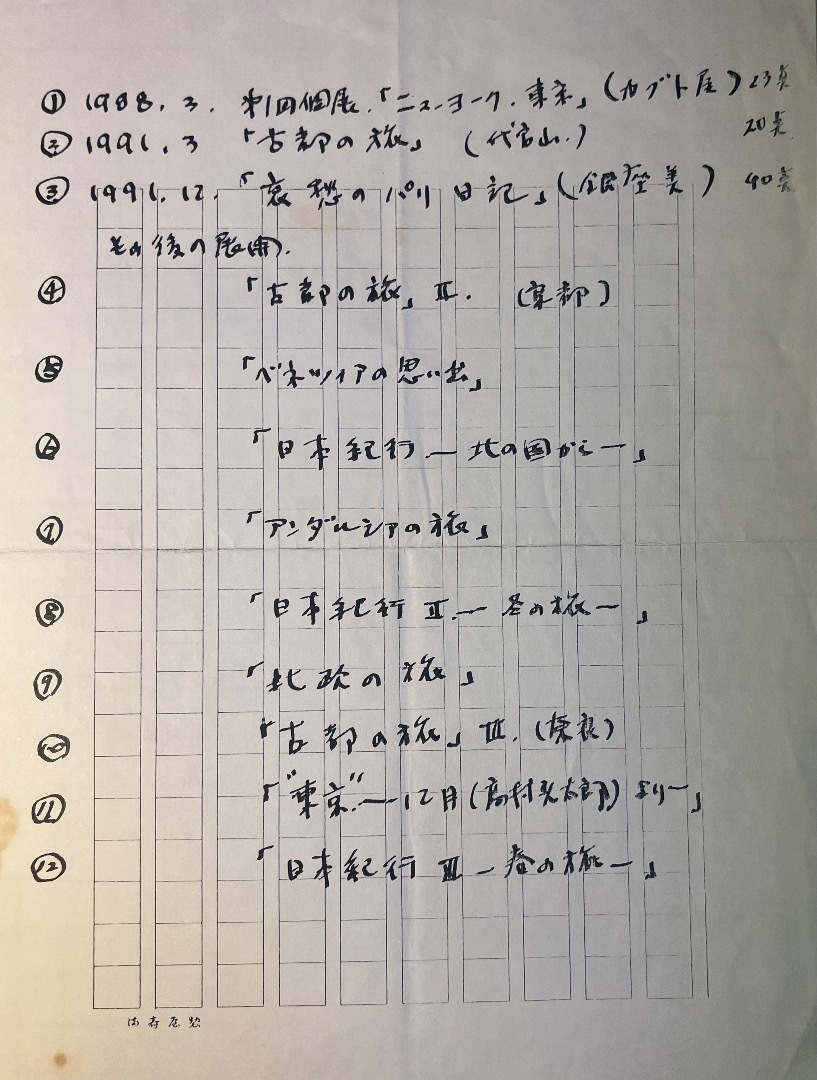 ① 1988.3. 第1回個展.「ニューヨーク.東京」(カブト屋) 23点
② 1991.3 「古都の旅」 (代官山.) 20点
③ 1991.12.「哀愁のパリ日記」(銀座美) 40点
その後の展開.
④ 「古都の旅」Ⅱ. (京都)
⑤ 「ベネツィアの思い出」
⑥ 「日本紀行 ― 北の国から ―」
⑦ 「アンダルシアの旅」
⑧ 「日本紀行Ⅱ. ― 冬の旅 ― 」
⑨ 「北欧の旅」
⑩ 「古都の旅」Ⅲ. (奈良)
⑪ 「"東京". ― 12月(高村光太郎)より ―」
⑫ 「日本紀行Ⅲ ― 春の旅 ― 」